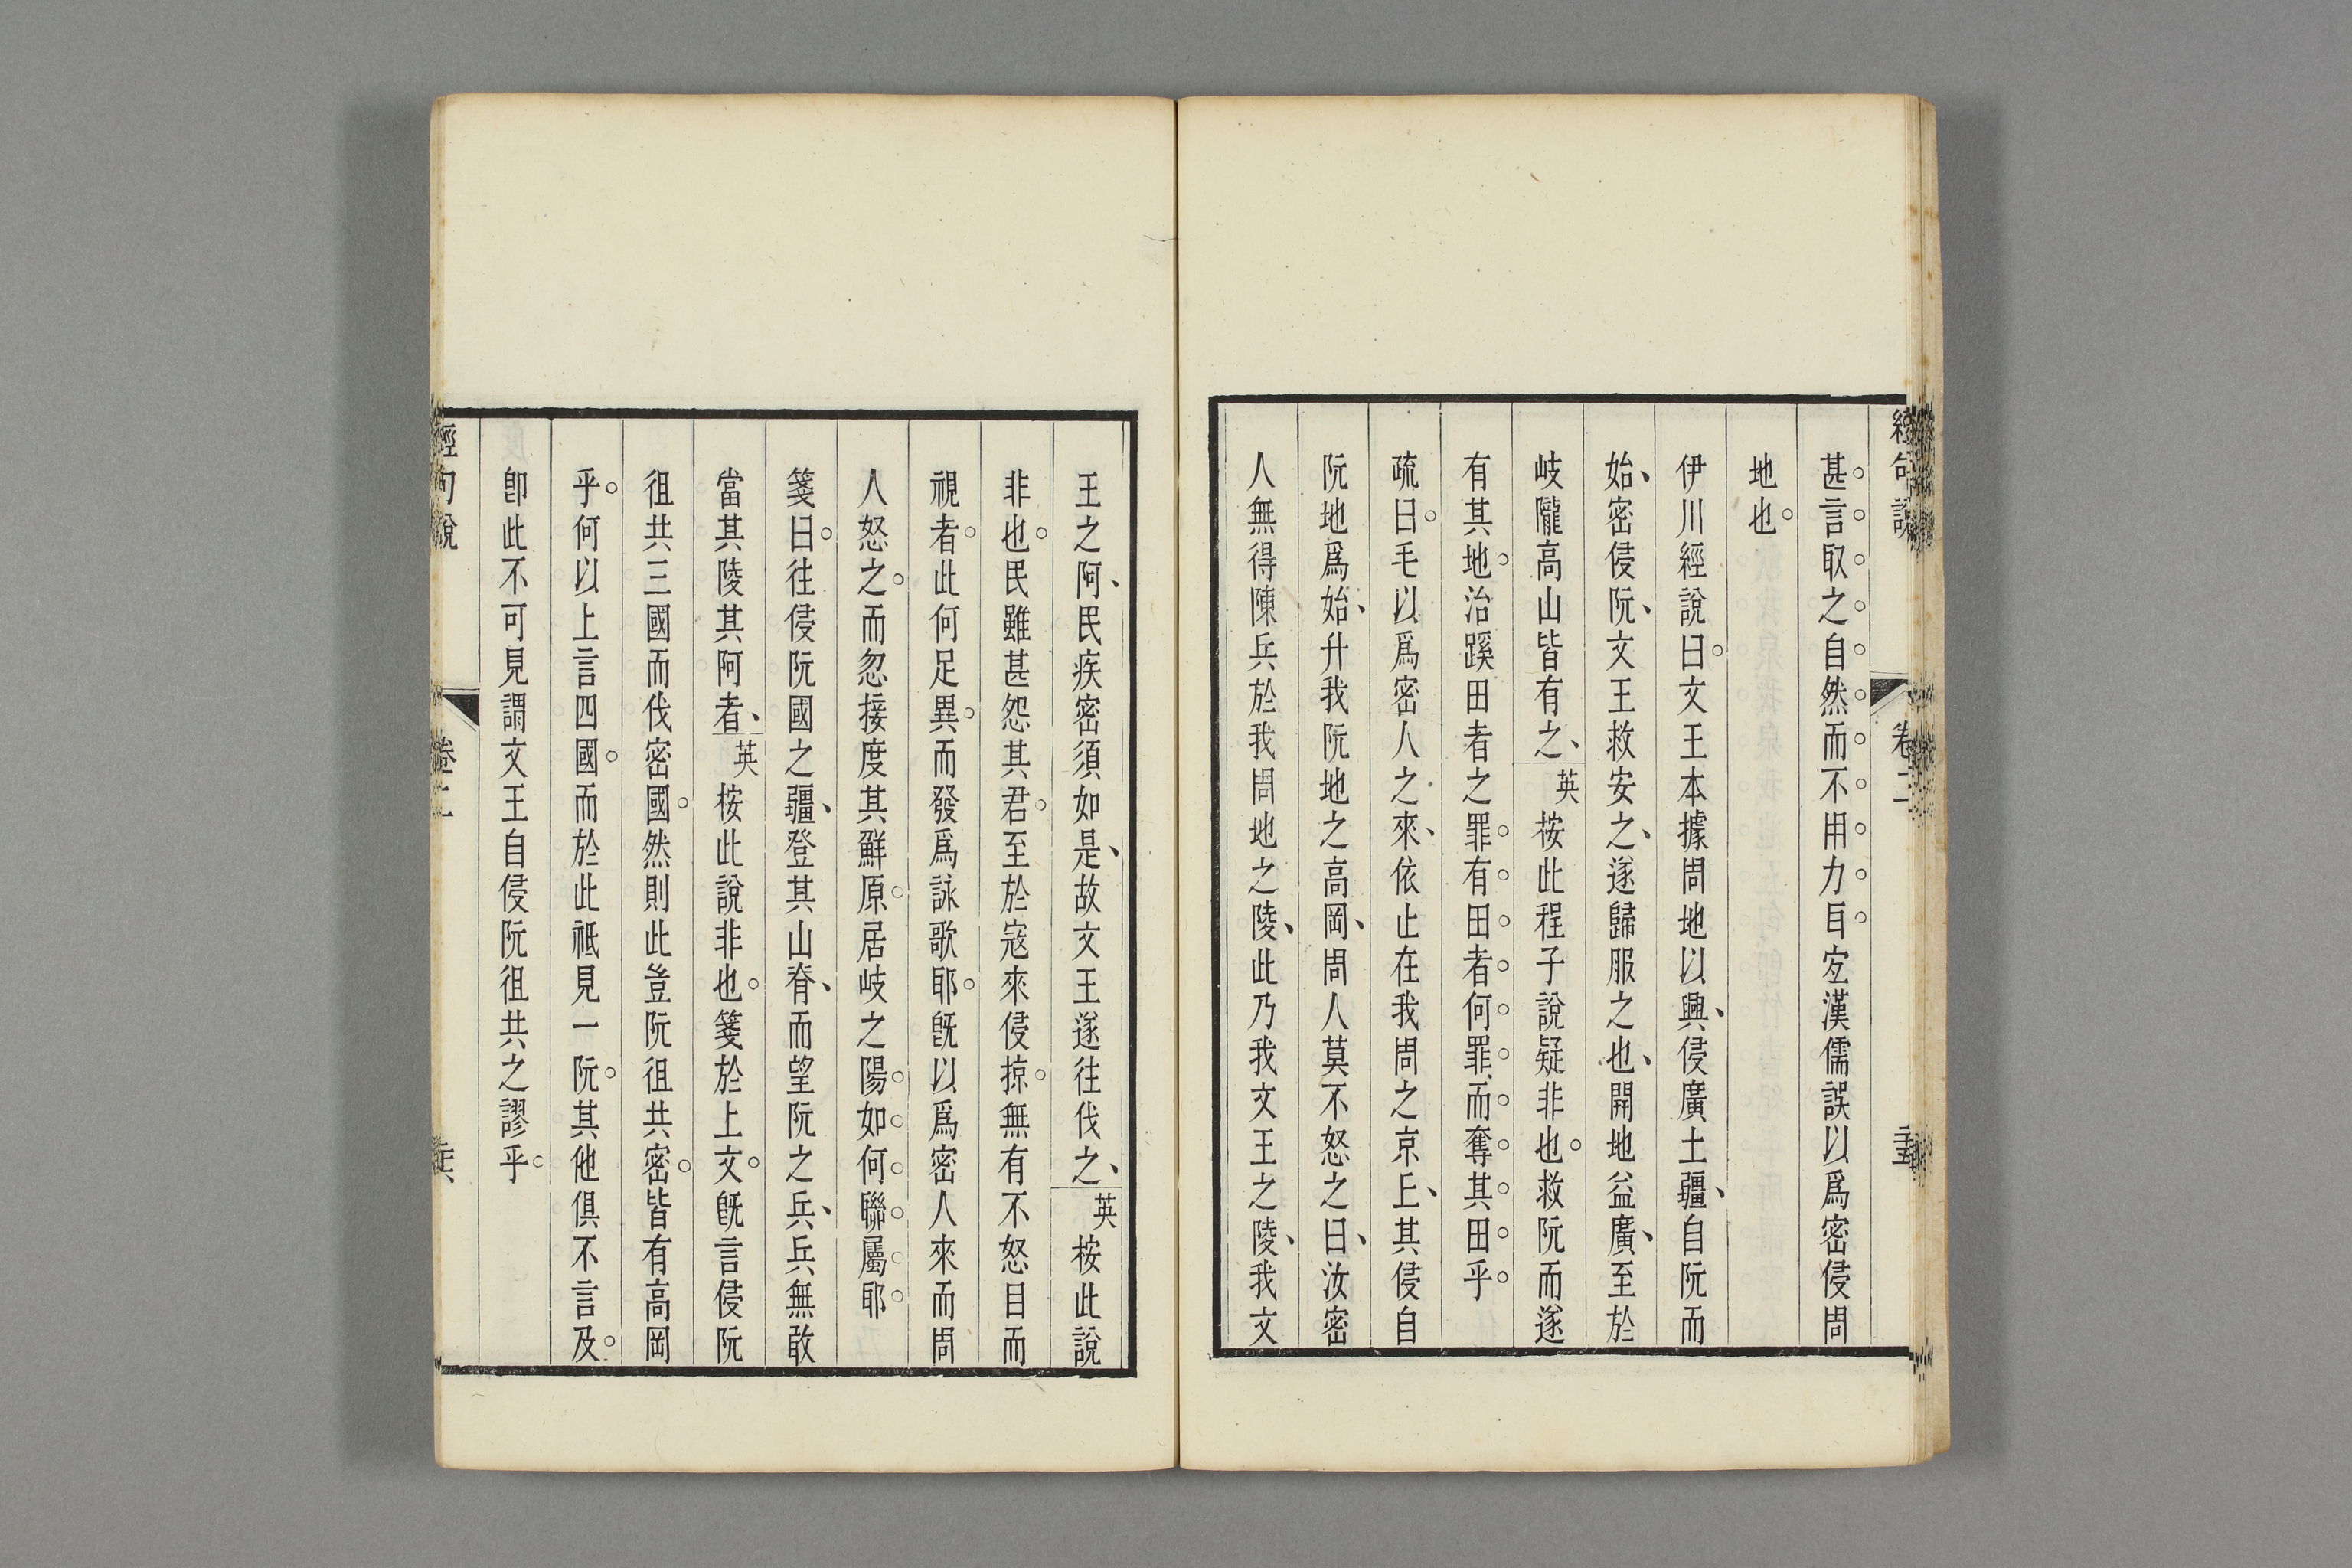 經句說
卷二
甚言取之自然而不用力耳。宜漢儒誤以爲密侵周
地也。
伊川經說曰。文王本據周地以興、侵廣土疆、自阮而
始、密侵阮、文王救安之、遂歸服之也、開地益廣、至於
岐隴高山皆有之、英桉此程子說疑非也。救阮而遂
有其地。治蹊田者之罪。有田者何罪。而奪其田乎。
疏曰。毛以爲密人之來、依止在我周之京上、其侵自
阮地爲始、升我阮地之高岡、周人莫不怒之曰、汝密
人無得陳兵於我周地之陵、此乃我文王之陵、我文
王之阿、民疾密須如是、故文王遂往伐之、英桉此說
非也。民雖甚怨其君。至於寇來侵掠。無有不怒目而
視者。此何足異。而發爲詠歌耶。旣以爲密人來而周
人怒之。而忽接度其鮮原。居岐之陽。如何聯屬耶。
箋曰。往侵阮國之疆、登其山脊、而望阮之兵、兵無敢
當其陵其阿者、英桉此說非也。箋於上文。旣言侵阮
徂共三國而伐密國。然則此豈阮徂共密。皆有高岡
乎。何以上言四國。而於此祗見一阮。其他俱不言及。
卽此不可見謂文王自侵阮徂共之謬乎。
經句說
卷二